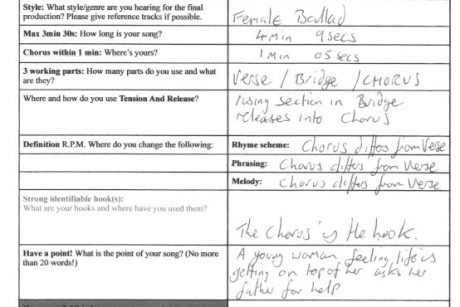 Style: What style/genre are you hearing for the final
production? Please give reference tracks if possible.
Female Ballad
Max 3min 30s: How long is your song?
4 min 9 secs
Chorus within 1 min: Where's yours?
1 Min 05 secs
3 working parts: How many parts do you use and what
are they?
Verse / Bridge / CHORUS
Where and how do you use Tension And Release?
rising section in Bridge
releases into Chorus
Definition R.P.M. Where do you change the following:
Rhyme scheme: Chorus differs from Verse
Phrasing: Chorus differs from Verse
Melody: Chorus differs from Verse
Strong identifiable hook(s):
What are your hooks and where have you used them?
The Chorus is the hook.
Have a point! What is the point of your song? (No more
than 20 words!)
A young woman feeling life is
getting on top of her asks her
father for help